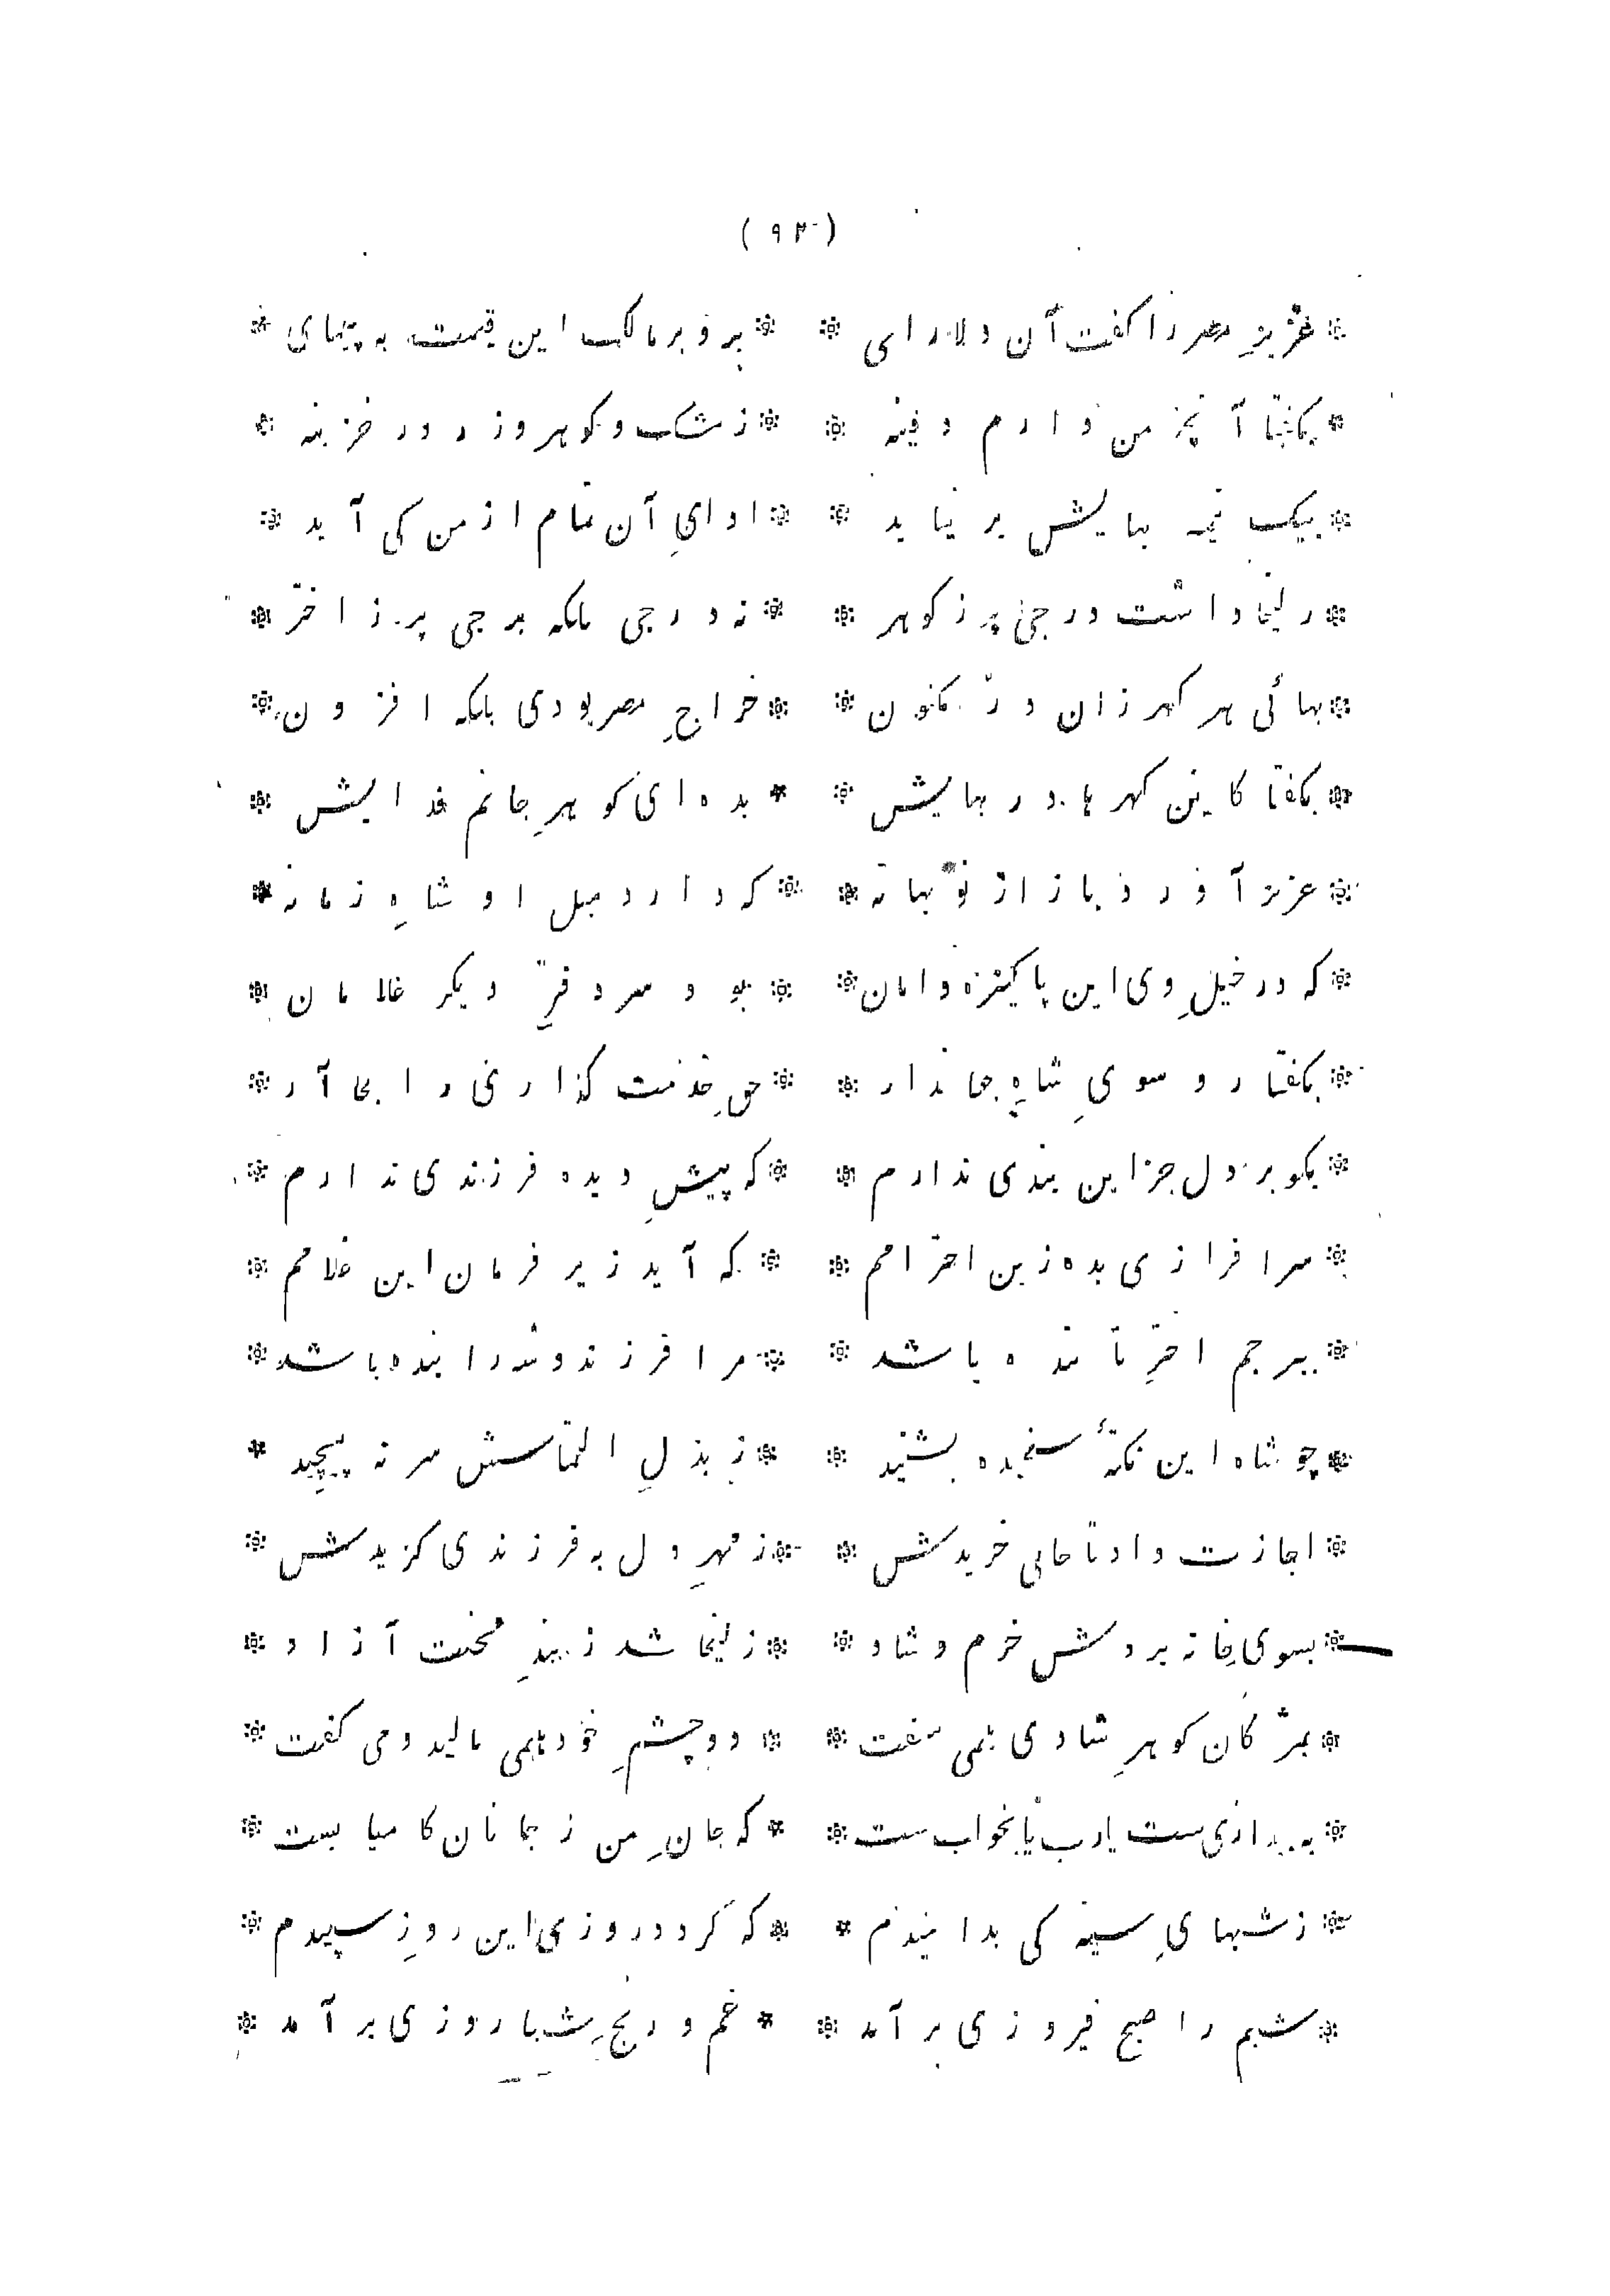 (۹۳)
* عزیزِ مصر را گفت آن دلارای * * برو بر مالک این قیمت به پیمای *
* بگفتا آنچه من دارم دفینه * * ز مشک و گوهر و زر در خزینه *
* بیک نیمه بهایش بر نیاید * * ادایِ آن تمام از من کی آید *
* زلیخا داشت درجی پر ز گوهر * * نه درجی بلکه برجی پر ز اختر *
* بهائی هر گهر زان درّ مکنون * * خراجِ مصر بودی بلکه افزون *
* بگفتا کاین گهرها در بهایش * * بده ای گوهرِ جانم فدایش *
* عزیز آورد باز از نو بهانه * * که دارد میل او شاهِ زمانه *
* که در خیلِ وی این پاکیزه دامان * * بود سر دفترِ دیگر غلامان *
* بگفتا رو سویِ شاهِ جهاندار * * حقِ خدمت گذاری را بجا آر *
* بگو بر دل جز این بندی ندارم * * که پیشِ دیده فرزندی ندارم *
* سرافرازی بده زین احترامم * * که آید زیر فرمان این غلامم *
* ببرجم اخترِ تابنده باشد * * مرا فرزند و شه را بنده باشد *
* چو شاه این نکتهٔ سنجیده بشنید * * ز بذلِ التماسش سر نه پیچید *
* اجازت داد تا حالی خریدش * * ز مهرِ دل به فرزندی گزیدش *
* بسوی خانه بردش خرم و شاد * * زلیخا شد ز بندِ محنت آزاد *
* بمژگان گوهرِ شادی همی سفت * * دو چشمِ خود همی مالید و می گفت *
* به بیداری ست یارب یا بخواب ست * * که جانِ من ز جانان کامیاب ست *
* ز شبهایِ سیه کی بد امیدم * * که گردد روزی این روزِ سپیدم *
* شبم را صبح فیروزی بر آمد * * غم و رنجِ شبا روزی بر آمد *